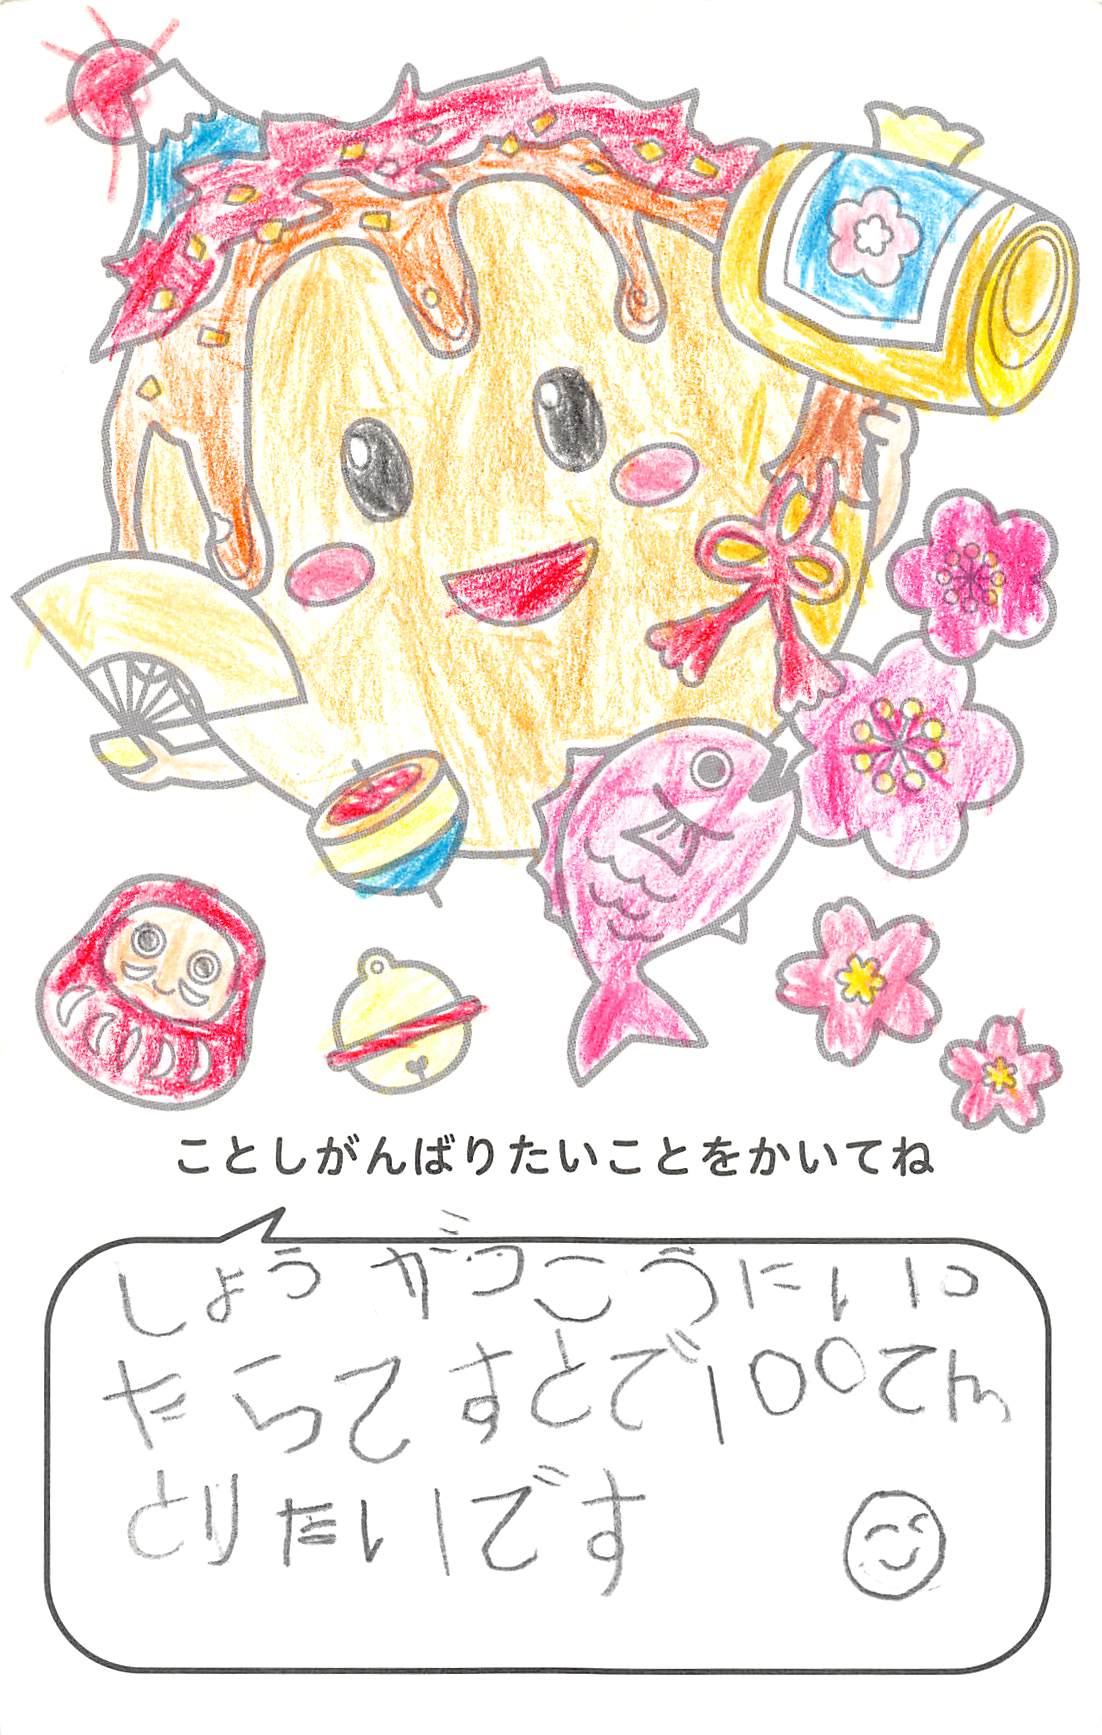 ことしがんばりたいことをかいてね
しょうがっこうにいっ
たらてすとで100てん
とりたいです